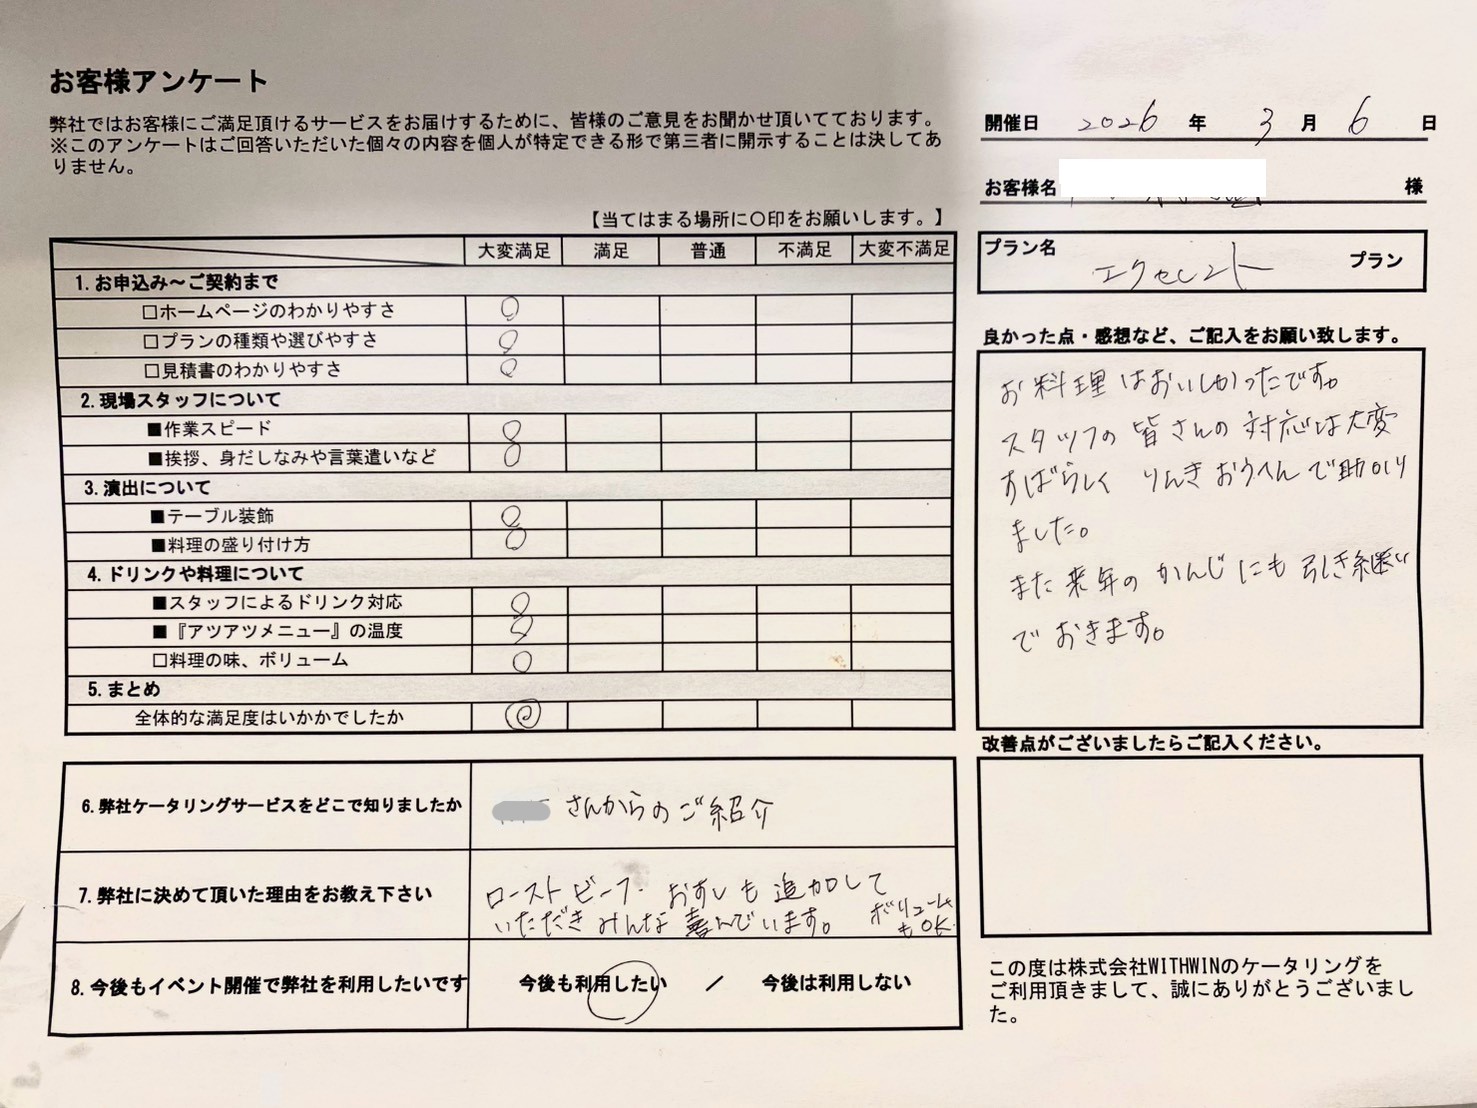 お客様アンケート
弊社ではお客様にご満足頂けるサービスをお届けするために、皆様のご意見をお聞かせ頂いてております。
※このアンケートはご回答いただいた個々の内容を個人が特定できる形で第三者に開示することは決してあ
りません。
【当てはまる場所に〇印をお願いします。】
大変満足 満足 普通 不満足 大変不満足
1.お申込み～ご契約まで
□ホームページのわかりやすさ ○
□プランの種類や選びやすさ ○
□見積書のわかりやすさ ○
2.現場スタッフについて
■作業スピード ○
■挨拶、身だしなみや言葉遣いなど ○
3.演出について
■テーブル装飾 ○
■料理の盛り付け方 ○
4.ドリンクや料理について
■スタッフによるドリンク対応 ○
■『アツアツメニュー』の温度 ○
□料理の味、ボリューム ○
5.まとめ
全体的な満足度はいかかでしたか ◎
6.弊社ケータリングサービスをどこで知りましたか
さんからのご紹介
7.弊社に決めて頂いた理由をお教え下さい
ローストビーフ・おすしも追加して
いただきみんな喜んでいます。 ボリューム
もOK.
8.今後もイベント開催で弊社を利用したいです
今後も利用したい ／ 今後は利用しない
開催日 2026 年 3 月 6 日
お客様名 様
プラン名 エクセレント プラン
良かった点・感想など、ご記入をお願い致します。
お料理はおいしかったです。
スタッフの皆さんの対応は大変
すばらしく りんきおうへんで助かり
ました。
また来年のかんじにも引き継い
でおきます。
改善点がございましたらご記入ください。
この度は株式会社WITHWINのケータリングを
ご利用頂きまして、誠にありがとうございまし
た。